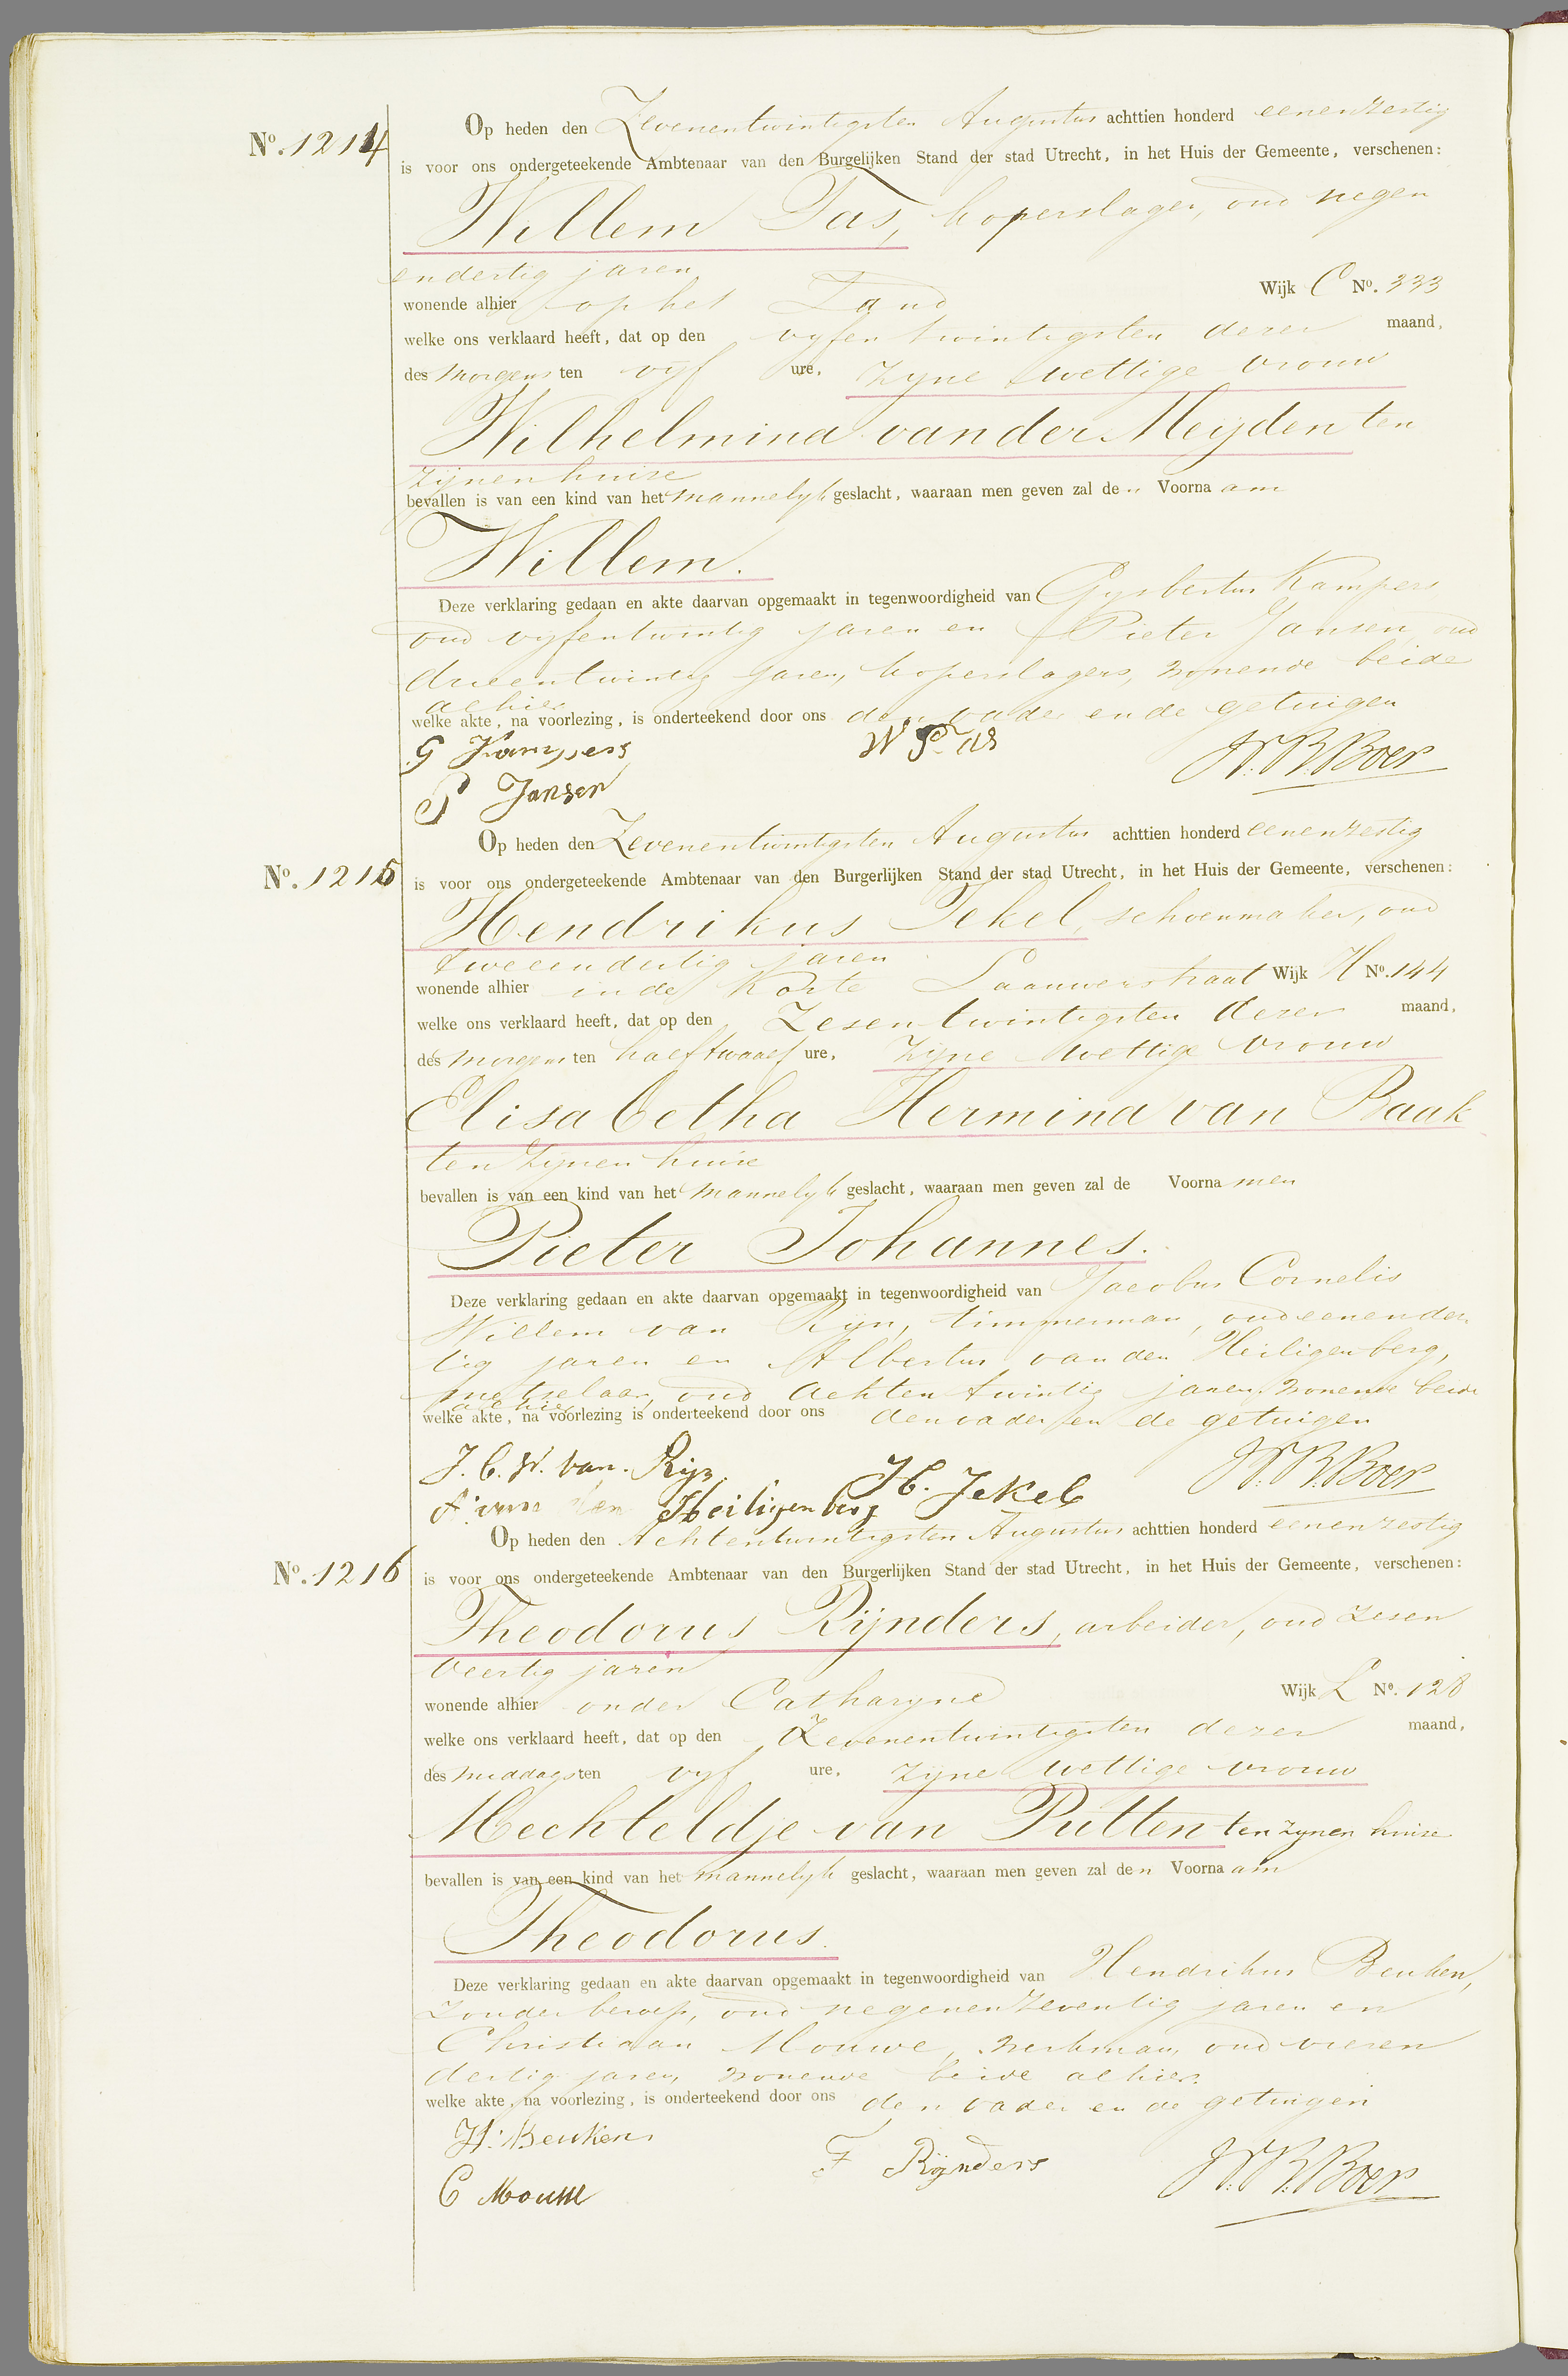 Nº. 1214
Op heden den Zevenentwintigsten Augustus achttien honderd eenenzestig
is voor ons ondergeteekende Ambtenaar van den Burgelijken Stand der stad Utrecht, in het Huis der Gemeente, verschenen:
Willem Tas, koperslager, oud negen
endertig jaren,
wonende alhier op het Zand Wijk C Nº. 333
welke ons verklaard heeft, dat op den vyfentwintigsten dezer maand,
des morgens ten vyf ure, zyne wettige vrouw
Wilhelmina van der Meijden ten
zijnen huize
bevallen is van een kind van het mannelyk geslacht, waaraan men geven zal den Voornaam
Willem.
Deze verklaring gedaan en akte daarvan opgemaakt in tegenwoordigheid van Gysbertus Kampers
oud vyfentwintig jaren en Pieter Jansen, oud
drieentwintig jaren, koperslagers, wonende beide
alhier
welke akte, na voorlezing, is onderteekend door ons den vader en de getuigen
G Kampers W Tas W. B. Boer
P Jansen
Nº. 1215
Op heden den Zevenentwintigsten Augustus achttien honderd eenenzestig
is voor ons ondergeteekende Ambtenaar van den Burgerlijken Stand der stad Utrecht, in het Huis der Gemeente, verschenen:
Hendrikus Jekel, schoenmaker, oud
tweeendertig jaren
wonende alhier in de Korte Lauwerstraat Wijk H Nº. 144
welke ons verklaard heeft, dat op den Zesentwintigsten dezer maand,
des morgens ten half twaalf ure, zijne wettige vrouw
Elisabetha Hermina van Baak
ten zijnen huize
bevallen is van een kind van het mannelyk geslacht, waaraan men geven zal de Voornamen
Pieter Johannes.
Deze verklaring gedaan en akte daarvan opgemaakt in tegenwoordigheid van Jacobus Cornelis
Willem van Rijn, timmerman, oud eenender
tig jaren en Albertus van den Heiligenberg,
metselaar, oud achtentwintig jaren, wonende beide
alhier
welke akte, na voorlezing is onderteekend door ons den vader en de getuigen
J. C. W. van Rijn H. Jekel W. B. Boer
A. van den Heiligenberg
Nº. 1216
Op heden den Achtentwintigsten Augustus achttien honderd eenenzestig
is voor ons ondergeteekende Ambtenaar van den Burgerlijken Stand der stad Utrecht, in het Huis der Gemeente, verschenen:
Theodorus Rijnders, arbeider, oud zesen
veertig jaren
wonende alhier onder Catharyne Wijk L Nº. 128
welke ons verklaard heeft, dat op den Zevenentwintigsten dezer maand,
des middags ten vyf ure, zyne wettige vrouw
Mechteldje van Putten ten zynen huize
bevallen is van een kind van het mannelyk geslacht, waaraan men geven zal den Voornaam
Theodorus.
Deze verklaring gedaan en akte daarvan opgemaakt in tegenwoordigheid van Hendrikus Beuken,
zonder beroep, oud negenenzeventig jaren en
Christiaan Mouwe, werkman, oud vieren
dertig jaren, wonende beide alhier.
welke akte, na voorlezing, is onderteekend door ons den vader en de getuigen
H. Beuken
F Rijnders W. B. Boer
C Mouwe